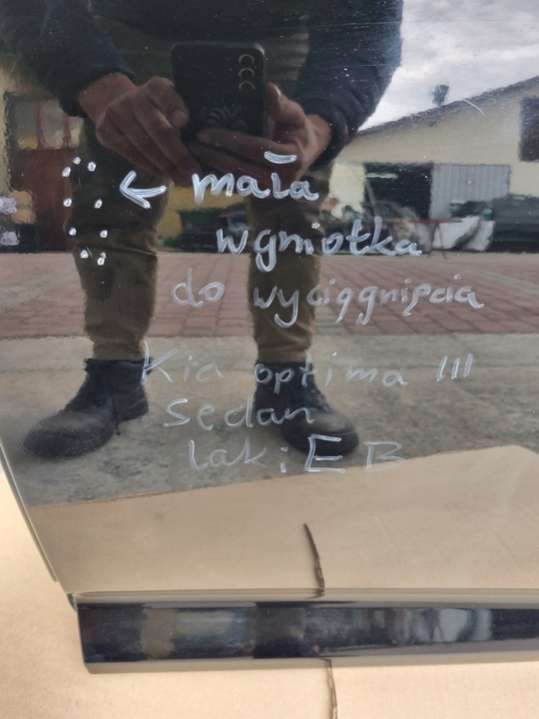 mała
wgniotka
do wyciągnięcia
Kia optima III
Sedan
lak: EB